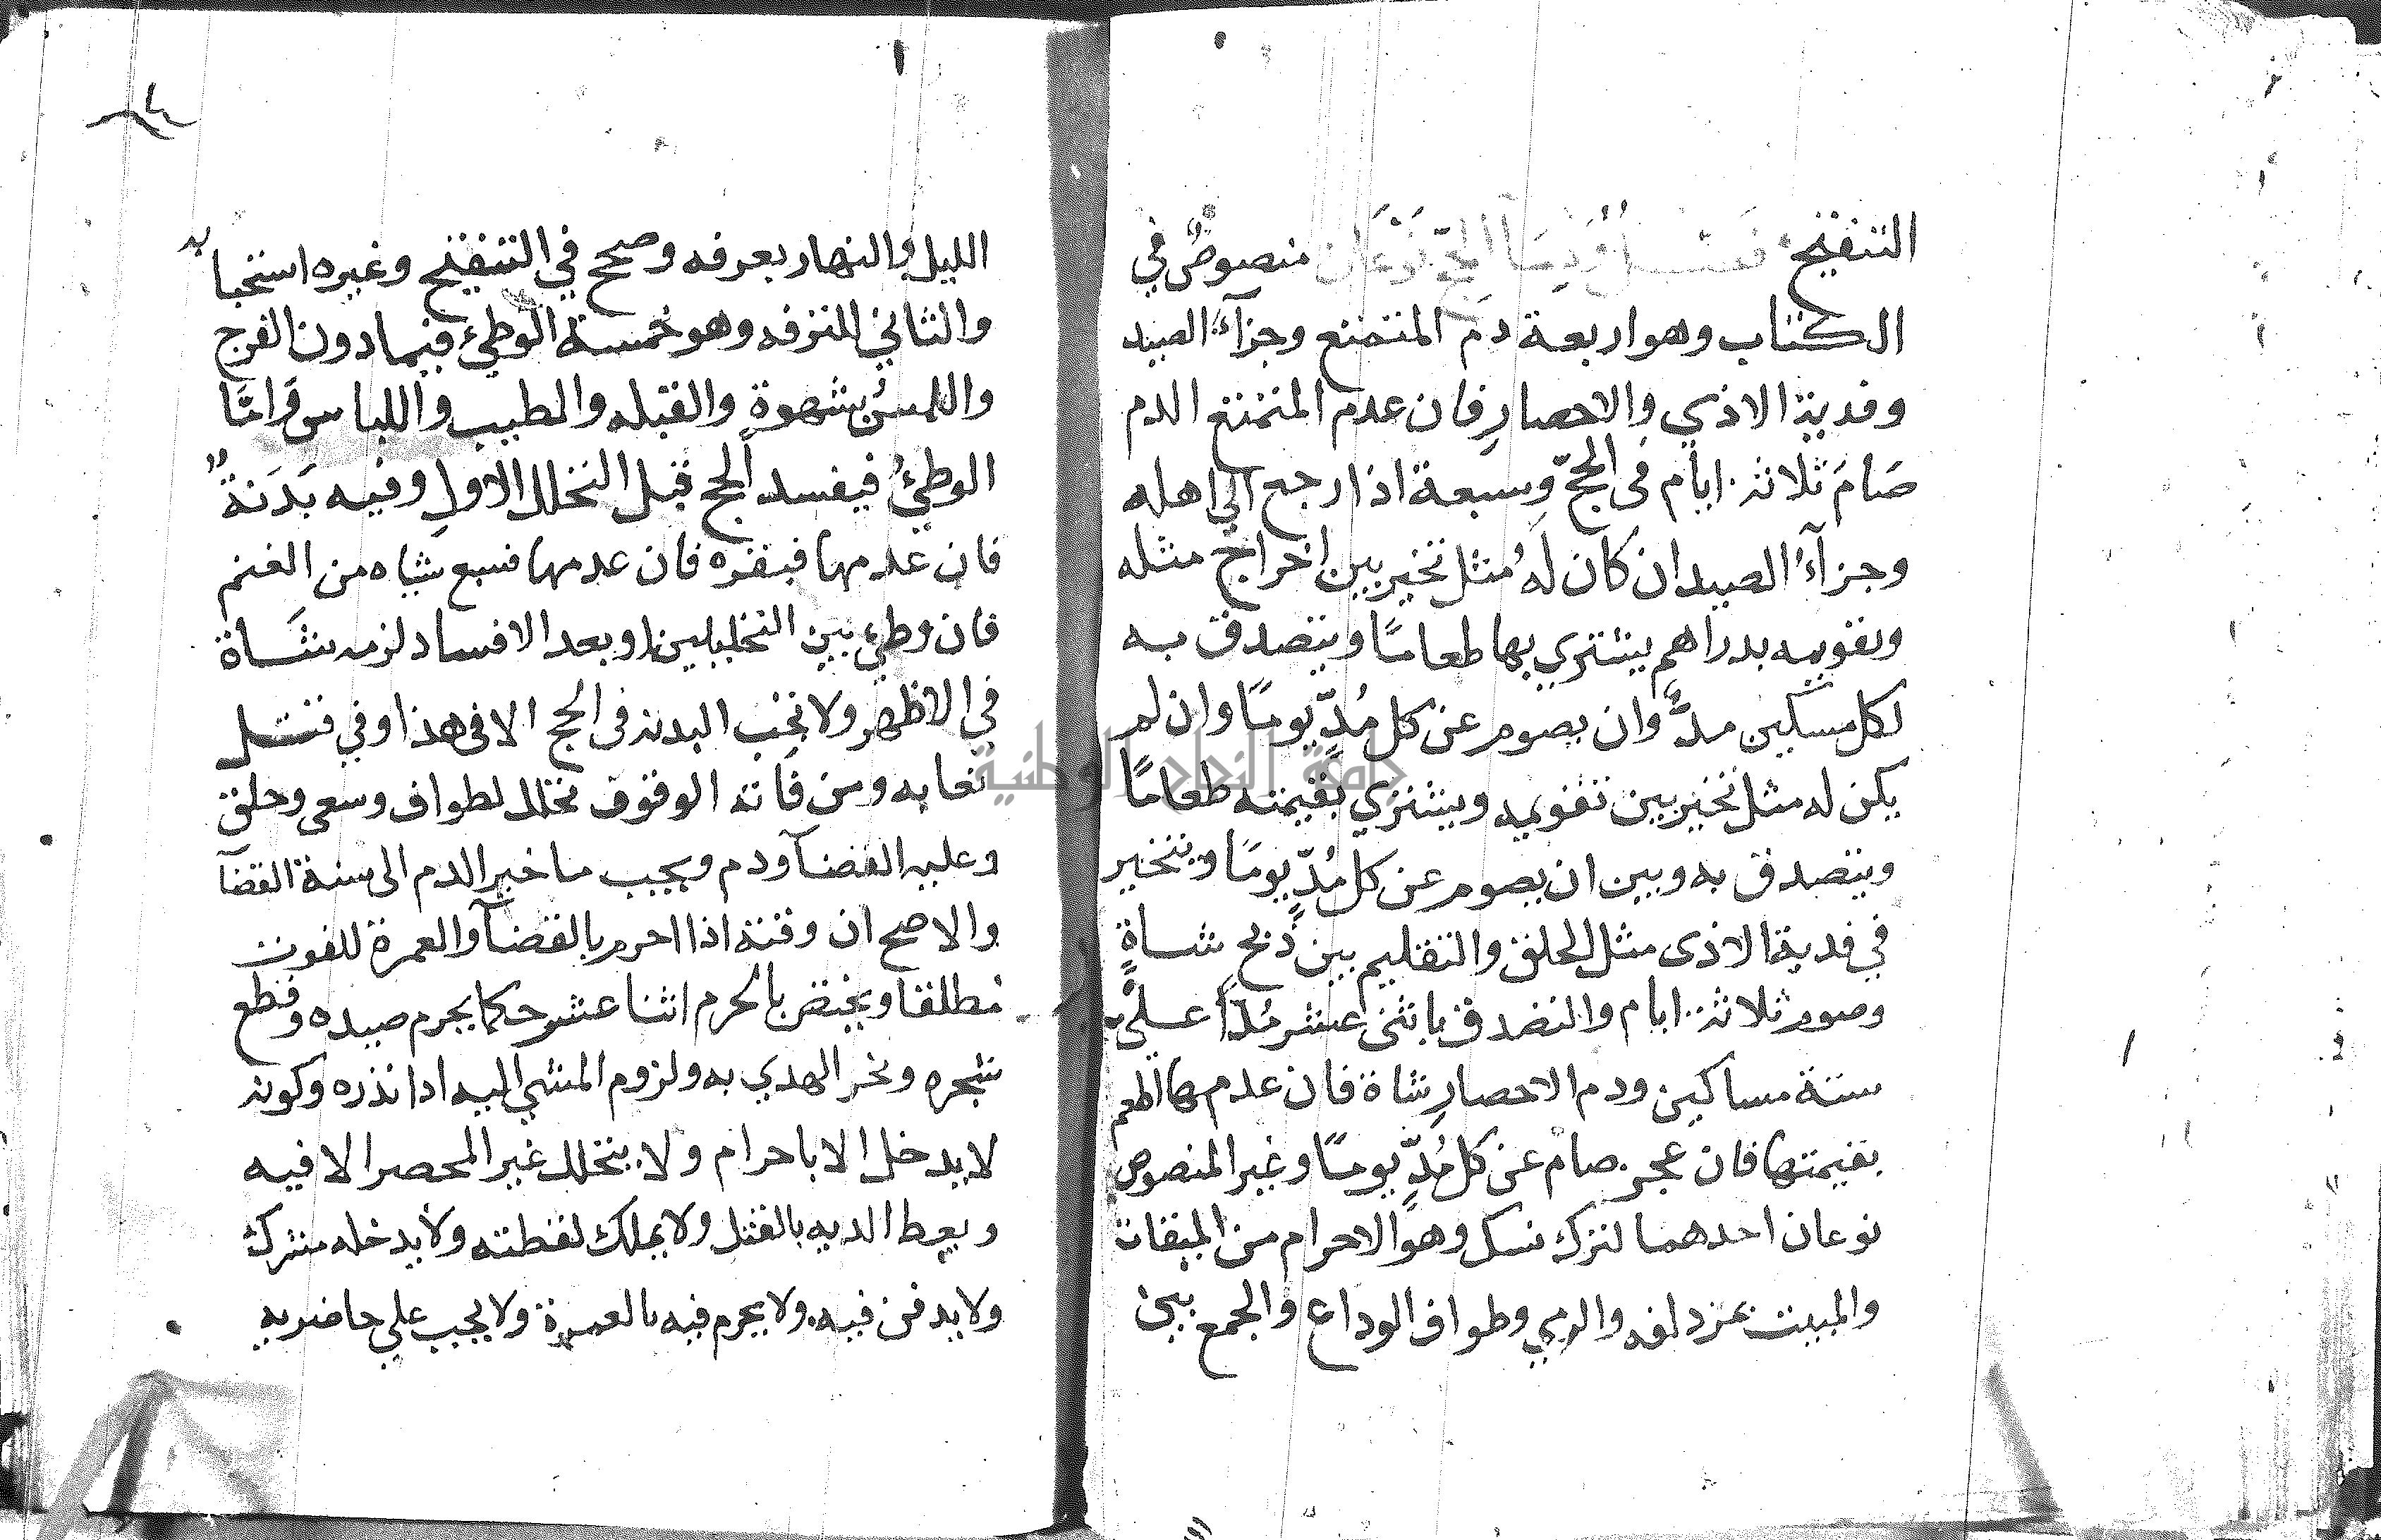 التنقيح فصل ودماء الحج نوعان منصوصٌ في
الكتاب وهو اربعة دم المتمتع وجزآءُ الصيد
وفدية الاذي والاحصارِ فان عدم المتمتع الدم
صَامَ ثلاثة ايام فى الحجّ وسبعة اذا رجع الي اهله
وجزآءُ الصيد ان كان لهُ مثل تخير بين اخراج مثله
وتقويمه بدراهم يشتري بها طعامًا ويتصدق به
لكل مسكين مدٌّ وان يصوم عن كل مُدّ يومًا وان لم
يكن له مثل تخير بين تقويمه ويشتري بقيمته طعامًا
ويتصدق به وبين ان يصوم عن كل مُدّ يومًا ويتخير
في فدية الاذى مثل الحلق والتقليم بين ذبح شاةٍ
وصوم ثلاثة ايام والتصدق باثنى عشر مُدًّا على
ستة مساكين ودم الاحصارِ شاة فان عدمها اطعم
بقيمتها فان عجز صام عن كل مُدٍّ يومًا وغير المنصوص
نوعان احدهما لترك نسك وهو الاحرام من الميقات
والمبيت بمزدلفه والرمي وطواف الوداع والجمع بين
الليل والنهار بعرفه وصحح في التنقيح وغيره استحبابه
والثاني للترفه وهو خمسة الوطئ فيما دون الفرج
واللمسُ بشهوة والقبله والطيب واللباس وَامَّا
الوطئُ فيفسد الحج قبل التحلل الاول وفيه بَدَنةٌ
فان عدمها فبقره فان عدمها فسبع شياه من الغنم
فان وطئ بين التحليلين او بعد الافساد لزمه شَاة
في الاظهر ولا تجب البدنه فى الحج الا فى هذا وفي قتل
نعامه ومن فاته الوقوف تحلل لطواف وسعى وحلق
وعليه القضآ ودم ويجب تاخير الدم الى سنة القضآ
والاصح ان وقته اذا احرم بالقضآ والعمرة للفوت
مطلقا ويختص بالحرم اثنا عشر حكما يحرم صيده وقطع
شجره ونحر الهدي به ولزوم المشي اليه اذا نذره وكونه
لا يدخل الا باحرام ولا يتحلل غير المحصر الا فيه
ويغلظ الديه بالقتل ولا يملك لقطته ولا يدخله مشرك
ولا يدفن فيه ولا يحرم فيه بالعمرة ولا يجب علي حاضريه
جامعة النجاح الوطنية